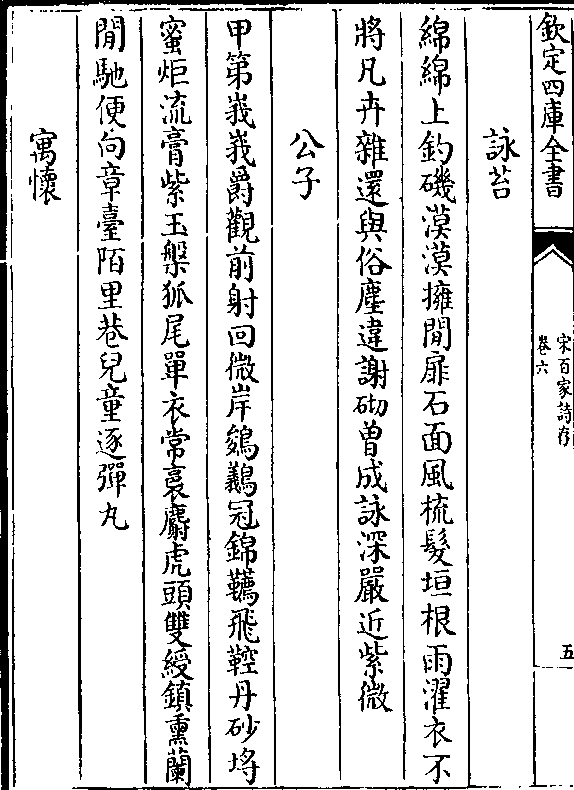 欽定四庫全書
宋百家詩存
卷六
五
詠苔
綿綿上釣磯漠漠擁閒扉石面風梳髮垣根雨濯衣不
將凡卉雜還與俗塵違謝砌曽成詠深嚴近紫微
公子
甲第峩峩爵觀前射回微岸鵕鸃冠錦韉飛鞚丹砂埒
蜜炬流膏紫玉槃狐尾單衣常裛麝虎頭雙綬鎮熏蘭
閒馳便向章臺陌里巷兒童逐彈丸
寓懷